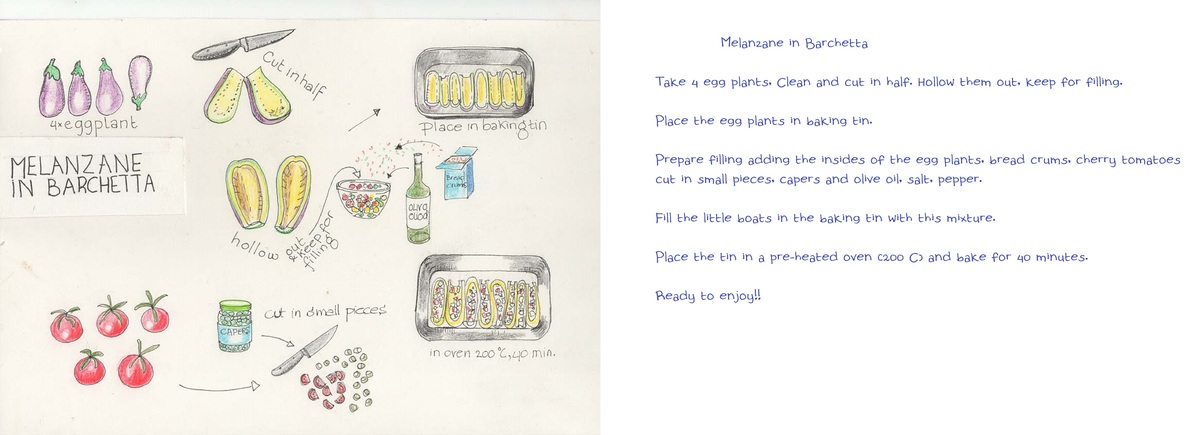 4x eggplant
Cut in half
Place in baking tin
MELANZANE
IN BARCHETTA
hollow out
& keep for
filling
Bread
crumbs
OLIVO
CAPERS
cut in small pieces
in oven 200°C, 40 min.
Melanzane in Barchetta
Take 4 egg plants. Clean and cut in half. Hollow them out. Keep for filling.
Place the egg plants in baking tin.
Prepare filling adding the insides of the egg plants, bread crums, cherry tomatoes
cut in small pieces, capers and olive oil, salt, pepper.
Fill the little boats in the baking tin with this mixture.
Place the tin in a pre-heated oven (200 C) and bake for 40 minutes.
Ready to enjoy!!